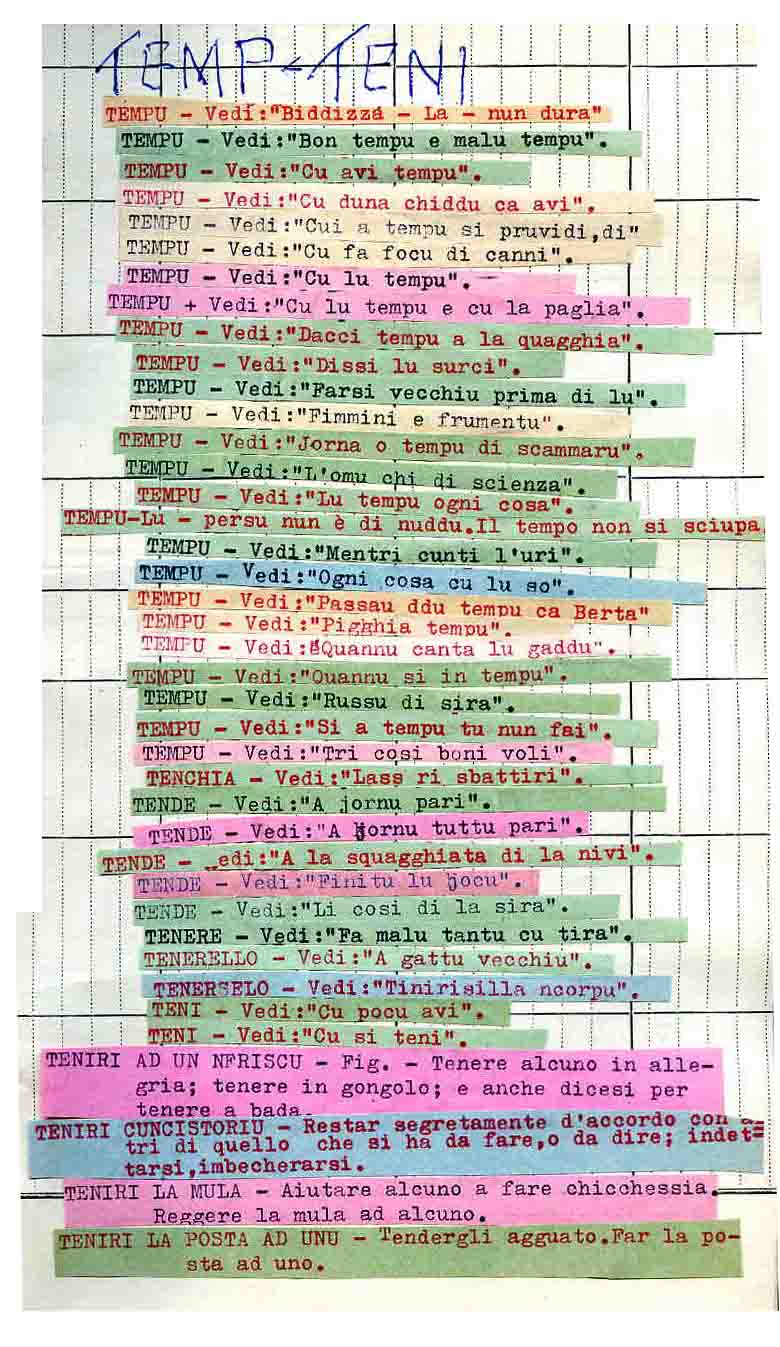 TEMP-TENI
TEMPU - Vedi:"Biddizza - La - nun dura"
TEMPU - Vedi:"Bon tempu e malu tempu".
TEMPU - Vedi:"Cu avi tempu".
TEMPU - Vedi:"Cu duna chiddu ca avi".
TEMPU - Vedi:"Cui a tempu si pruvidi,di"
TEMPU - Vedi:"Cu fa focu di canni".
TEMPU - Vedi:"Cu lu tempu".
TEMPU + Vedi:"Cu lu tempu e cu la paglia".
TEMPU - Vedi:"Dacci tempu a la quagghia".
TEMPU - Vedi:"Dissi lu surci".
TEMPU - Vedi:"Farsi vecchiu prima di lu".
TEMPU - Vedi:"Fimmini e frumentu".
TEMPU - Vedi:"Jorna o tempu di scammaru".
TEMPU - Vedi:"L'omu chi di scienza".
TEMPU - Vedi:"Lu tempu ogni cosa".
TEMPU-Lu - persu nun è di nuddu.Il tempo non si sciupa.
TEMPU - Vedi:"Mentri cunti l'uri".
TEMPU - Vedi:"Ogni cosa cu lu so".
TEMPU - Vedi:"Passau ddu tempu ca Berta"
TEMPU - Vedi:"Pigghia tempu".
TEMPU - Vedi:"Quannu canta lu gaddu".
TEMPU - Vedi:"Quannu si in tempu".
TEMPU - Vedi:"Russu di sira".
TEMPU - Vedi:"Si a tempu tu nun fai".
TEMPU - Vedi:"Tri cosi boni voli".
TENCHIA - Vedi:"Lass ri sbattiri".
TENDE - Vedi:"A jornu pari".
TENDE - Vedi:"A jornu tuttu pari".
TENDE - edi:"A la squagghiata di la nivi".
TENDE - Vedi:"Finitu lu jocu".
TENDE - Vedi:"Li cosi di la sira".
TENERE - Vedi:"Fa malu tantu cu tira".
TENERELLO - Vedi:"A gattu vecchiu".
TENERSELO - Vedi:"Tinirisilla ncorpu".
TENI - Vedi:"Cu pocu avi".
TENI - Vedi:"Cu si teni".
TENIRI AD UN NFRISCU - Fig. - Tenere alcuno in alle-
gria; tenere in gongolo; e anche dicesi per
tenere a bada.
TENIRI CUNCISTORIU - Restar segretamente d'accordo con
tri di quello che si ha da fare,o da dire; indet-
tarsi,imbecherarsi.
TENIRI LA MULA - Aiutare alcuno a fare chicchessia.
Reggere la mula ad alcuno.
TENIRI LA POSTA AD UNU - Tendergli agguato.Far la po-
sta ad uno.